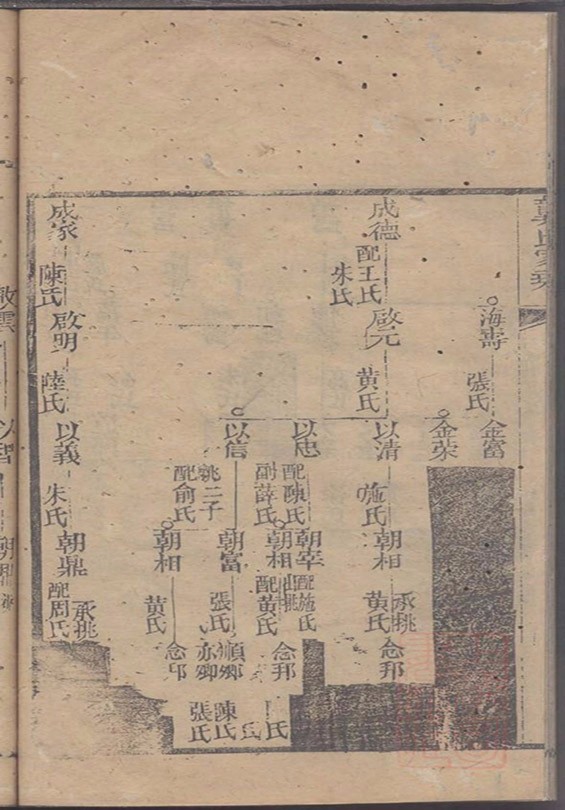 海壽
張氏
金富
金榮
成德
配王氏
朱氏
啟元
黃氏
以清
施氏
朝相
承挑
黃氏
念邦
以忠
配陳氏
副薛氏
朝宰
配施氏
朝相
配黃氏
念邦
氏
以信
挑二子
配俞氏
朝富
張氏
順卿
亦卿
陳氏
張氏
氏
朝相
黃氏
念邦
成家
陳氏
啟明
陸氏
以義
朱氏
朝鼎
承挑
配周氏
以智